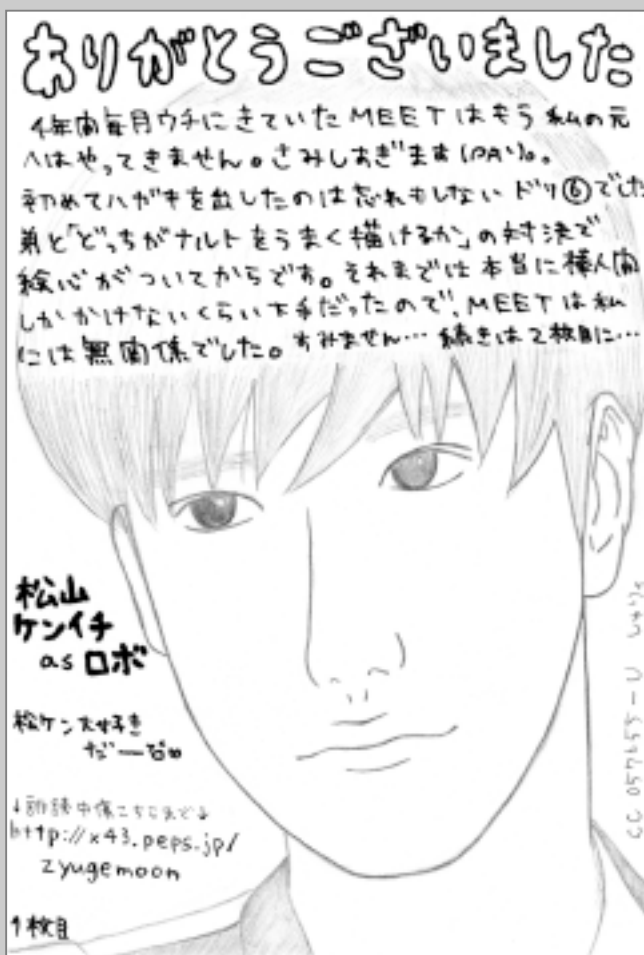 ありがとうございました
1年間毎月ウチにきていたMEETはもう私の元
へはやってきません。さみしすぎます(PAン)。
初めてハガキを出したのは忘れもしないドリ⑥でした
弟と「どっちがナルトをうまく描けるか」の対決で
絵心がついてからです。それまでは本当に棒人間
しかかけないくらい下手だったので、MEETは私
には無関係でした。すみません…続きは2枚目に…
松山
ケンイチ
as ロボ
松ケン大好き
だーな
↓誹謗中傷こちらまで↓
http://x43.peps.jp/
zyugemoon
1枚目